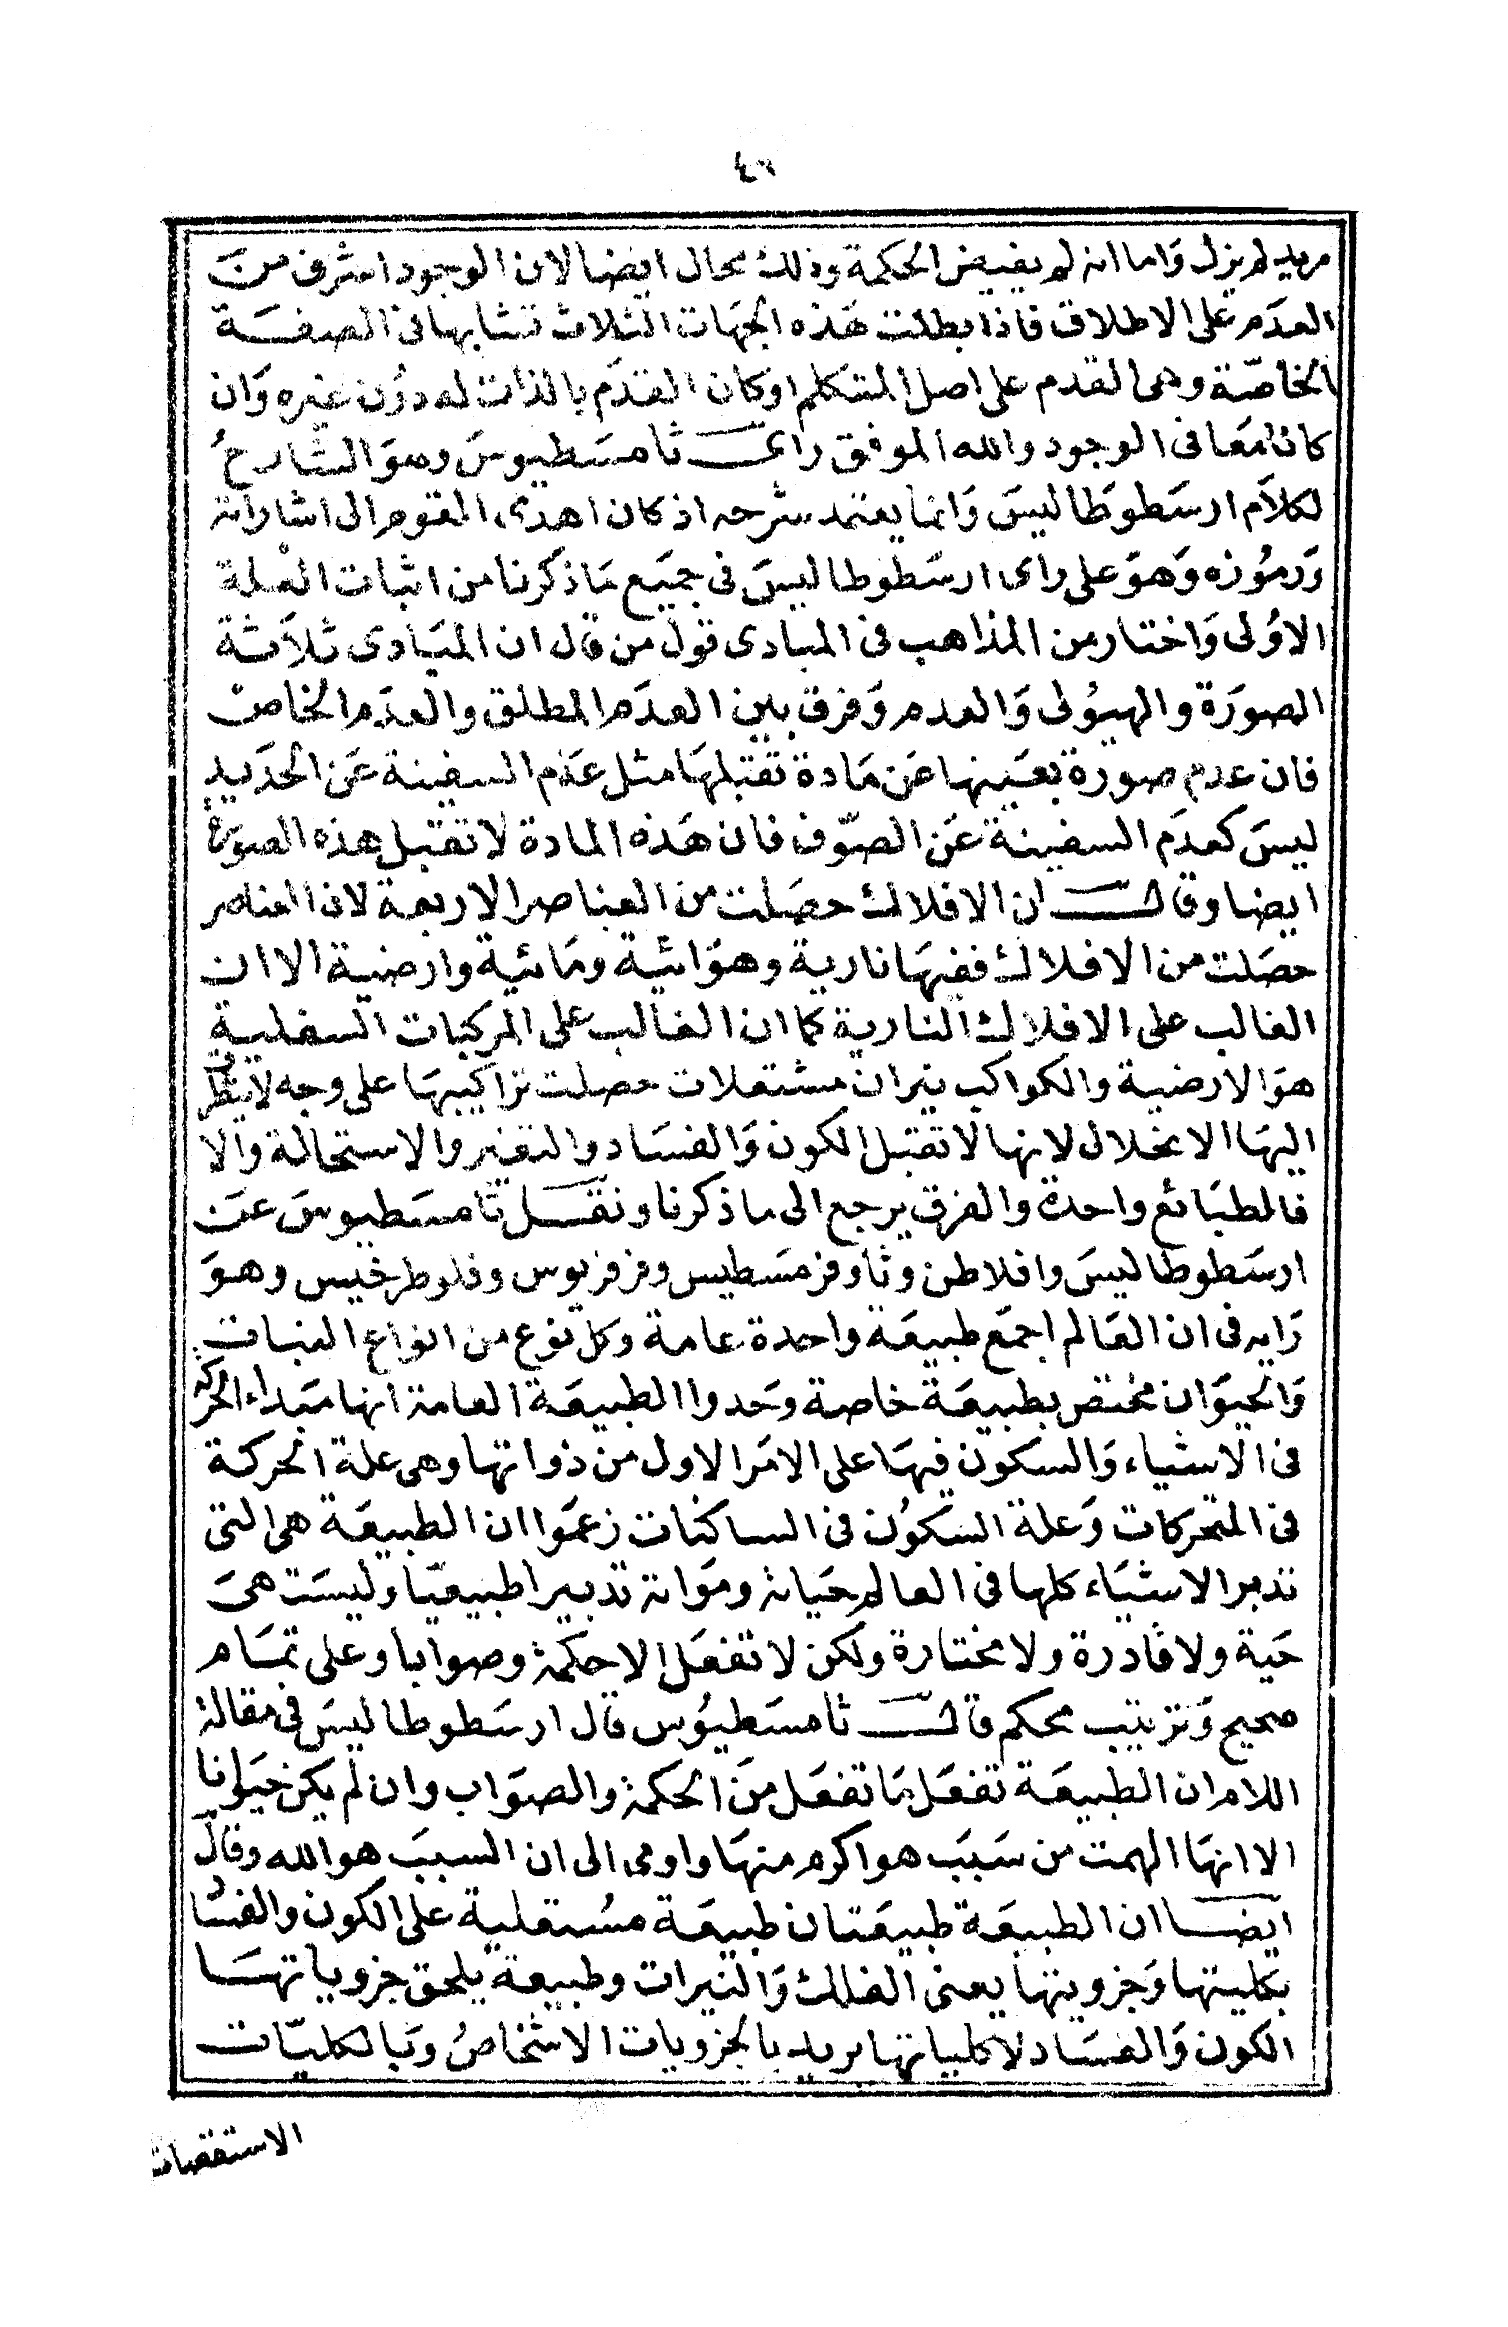 مريد لم يزل وَاما انه لم يفيض الحكمة وذلك محال ايضا لان الوجود اشرف منَ
العدَم على الاطلاق فاذا بطلت هَذه الجهَات الثلاث تشابها فى الصفَة
الخاصّة وهى القدم على اصل المتكلم او كان القدَم بالذات له دوُن غيره وَان
كانا مَعا فى الوجود والله الموفق راى ثامسَطيوسَ وهوَ الشارحُ
لكلاَم ارسَطوطَاليسَ وَانما يعتمد شرحه اذ كان اهدى القوم الى اشاراته
وَرموُزه وَهوَ على راى ارسَطوطاليسَ فى جميَع مَا ذكرنا من اثبات العْلة
الاوُلى وَاختار من المذاهب فى المبادى قول من قال ان المبَادى ثلاَثة
الصورَة والهيوُلى وَالعدم وَفرق بين العدَم المطلق والعدَم الخاص
فان عدم صورة بعَينها عَن مَادة تقبلهَا مثل عدَم السفينة عَن الحدَيد
ليسَ كعدَم السفينة عَن الصّوف فان هَذه المادة لا تقبل هذه الصورَة
ايضا وقال ان الافلاك حصَلت من العناصر الاربعة لان العناصر
حصَلت من الافلاك ففيهَا نارية وهوَائية ومَائية وارضية الا ان
الغالب على الافلاك النارية كما ان الغالب على المركبات السفلية
هوَ الارضية والكواكب نيران مشتعلات حصلت تراكيبهَا على وجه لا يتطرق
اليهَا الانحلال لانها لا تقبل الكون وَالفسَاد والتغير والاستحالة والا
فالطبَائع واحدة والفرق يرجع الى ما ذكرنا ونقَل ثامسَطيوسَ عن
ارسَطوطاليسَ وافلاطن وثاوفرمسَطيس وفرفريوس وفلوطرخيس وهوَ
رَايه فى ان العَالم اجمَع طبيعَة واحدة عامة وكل نوع من انواع النبات
وَالحيوَان مختص بطبيعَة خاصة وحَدوا الطبيعَة العامة انها مبَداء الحركة
فى الاشياء وَالسكون فيهَا على الامَر الاول من ذواتها وهى علة الحركة
فى المتحركات وَعلة السكوُن فى الساكنات زعمَوا ان الطبيعَة هى التى
تدبر الاشيَاء كلها فى العالم حيَاته ومَواته تدبيرا طبيعيّا وليسَت هىَ
حَية ولا قادرة ولا مختارة ولكن لا تفعَل الا حكمة وصوابا وعلى تمَام
صحيح وَترتيب محكم قال ثامسَطيوُس قال ارسَطوطاليسَ فى مقالة
اللام ان الطبيعَة تفعَل مَا تفعَل منَ الحكمة والصوَاب وان لم يكن حيَوانا
الا انهَا الهمت من سَبَب هو اكرم منهَا واومى الى ان السببَ هو الله وقال
ايضَا ان الطبيعَة طبيعَتان طبيعَة مسُتعلية على الكون والفسَاد
بكليتها وَجزويتها يعنى الفلك وَالنيرات وطبيعة يلحق جزوياتهَا
الكون وَالفسَاد لا كلياتها يريد بالجزويات الاشخاصُ وَبالكليّات
الاستقصات